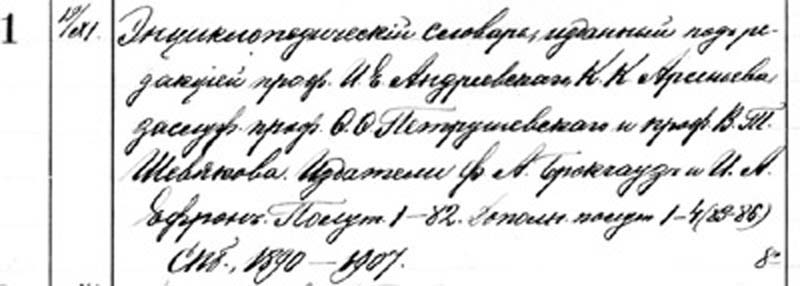 1 19/XI. Энциклопедическій словарь, изданный подъ ре-
дакціей проф. И. Е. Андреевскаго, К. К. Арсеньева,
заслуж. проф. Ѳ. Ѳ. Петрушевскаго и проф. В. Т.
Шевякова. Издатели Ф. А. Брокгаузъ и И. А.
Ефронъ. Полут. 1–82. Дополн. полут. 1–4 (83-86)
СПб., 1890–1907. 8º